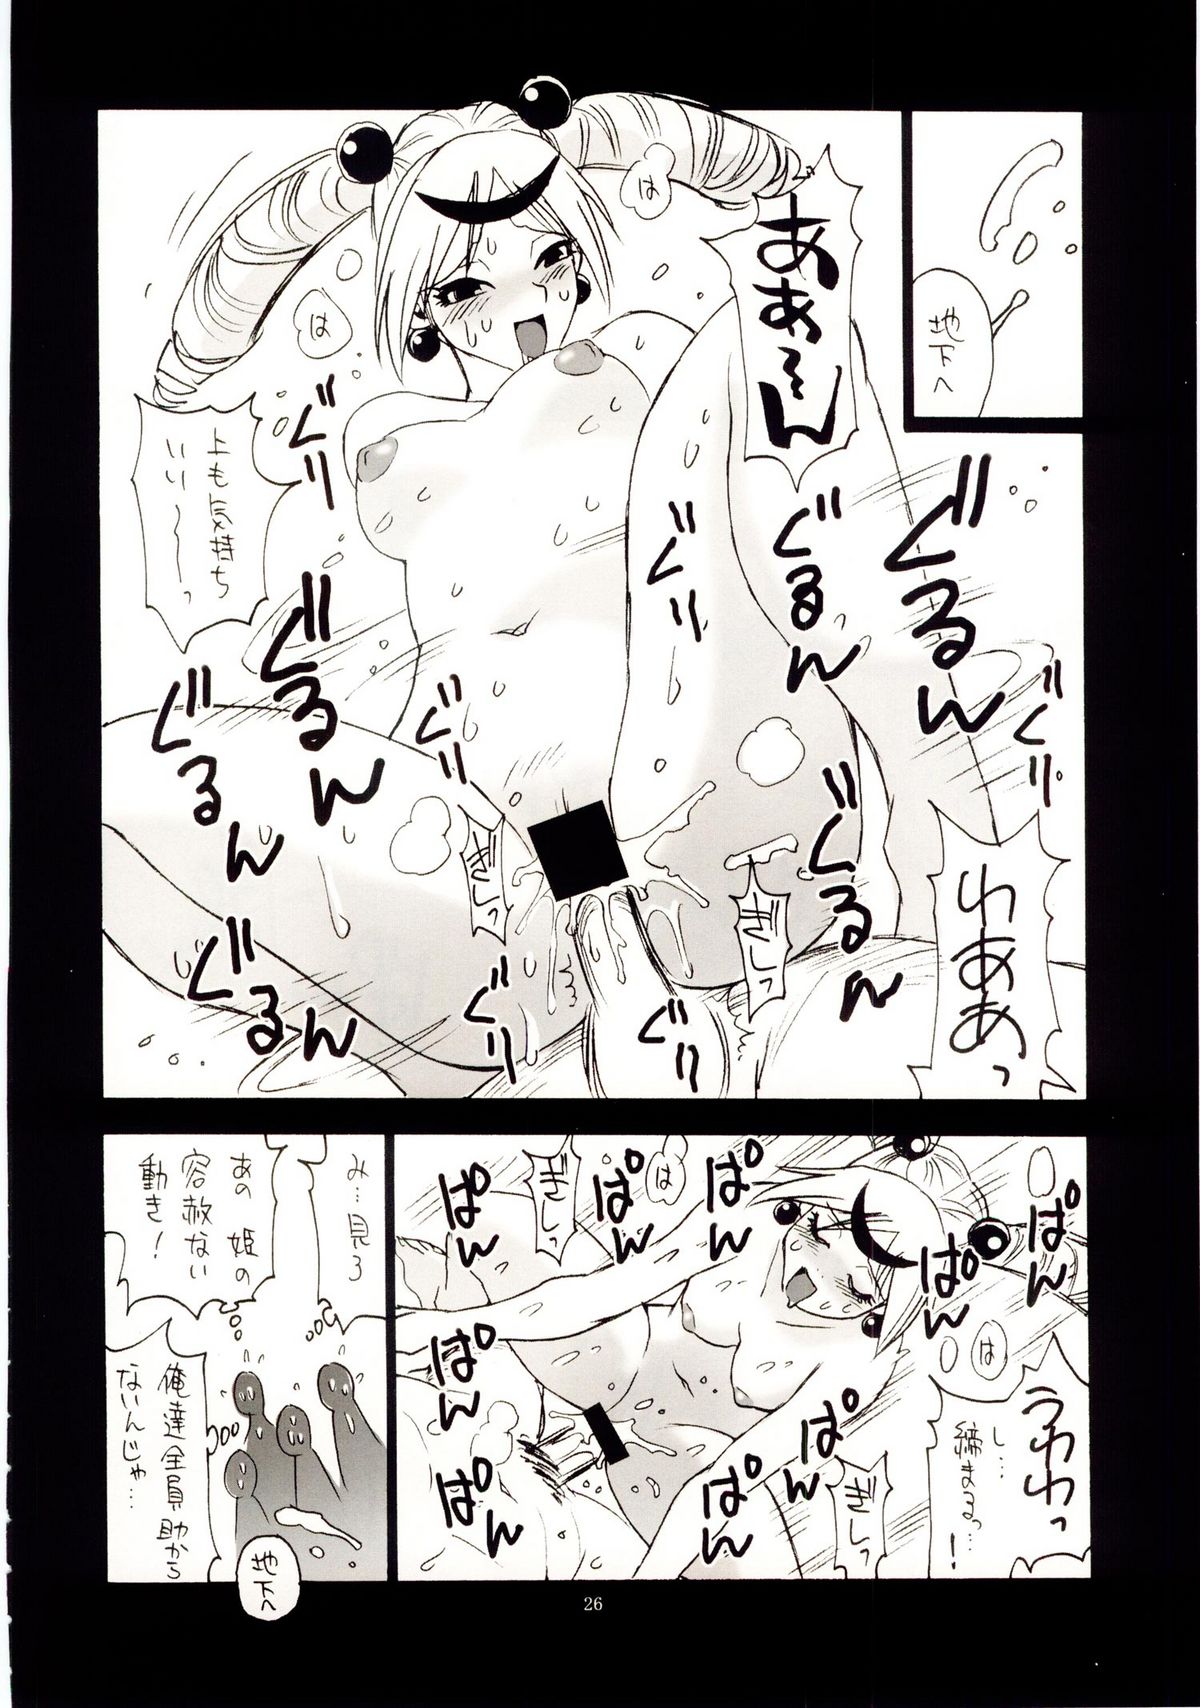 地下へ
あぁ〜ん
は
は
上も気持ち
いい〜〜っ
ぐるん
ぐるん
ぐり
ぐり
ぐり
ぐり
ぐるん
ぐるん
ぐるん
ぐるん
ぎしっ
ぎしっ
ぐり
ぐり
わああっ
ぱん
ぱん
ぱん
ぱん
ぱん
は
は
ぎしっ
うわわっ
し…
締まるっ…！
ぱん
ぱん
ぱん
ぱん
ぎしっ
み…見ろ
あの姫の
容赦ない
動き！
俺達全員助から
ないんじゃ…
地下へ
26